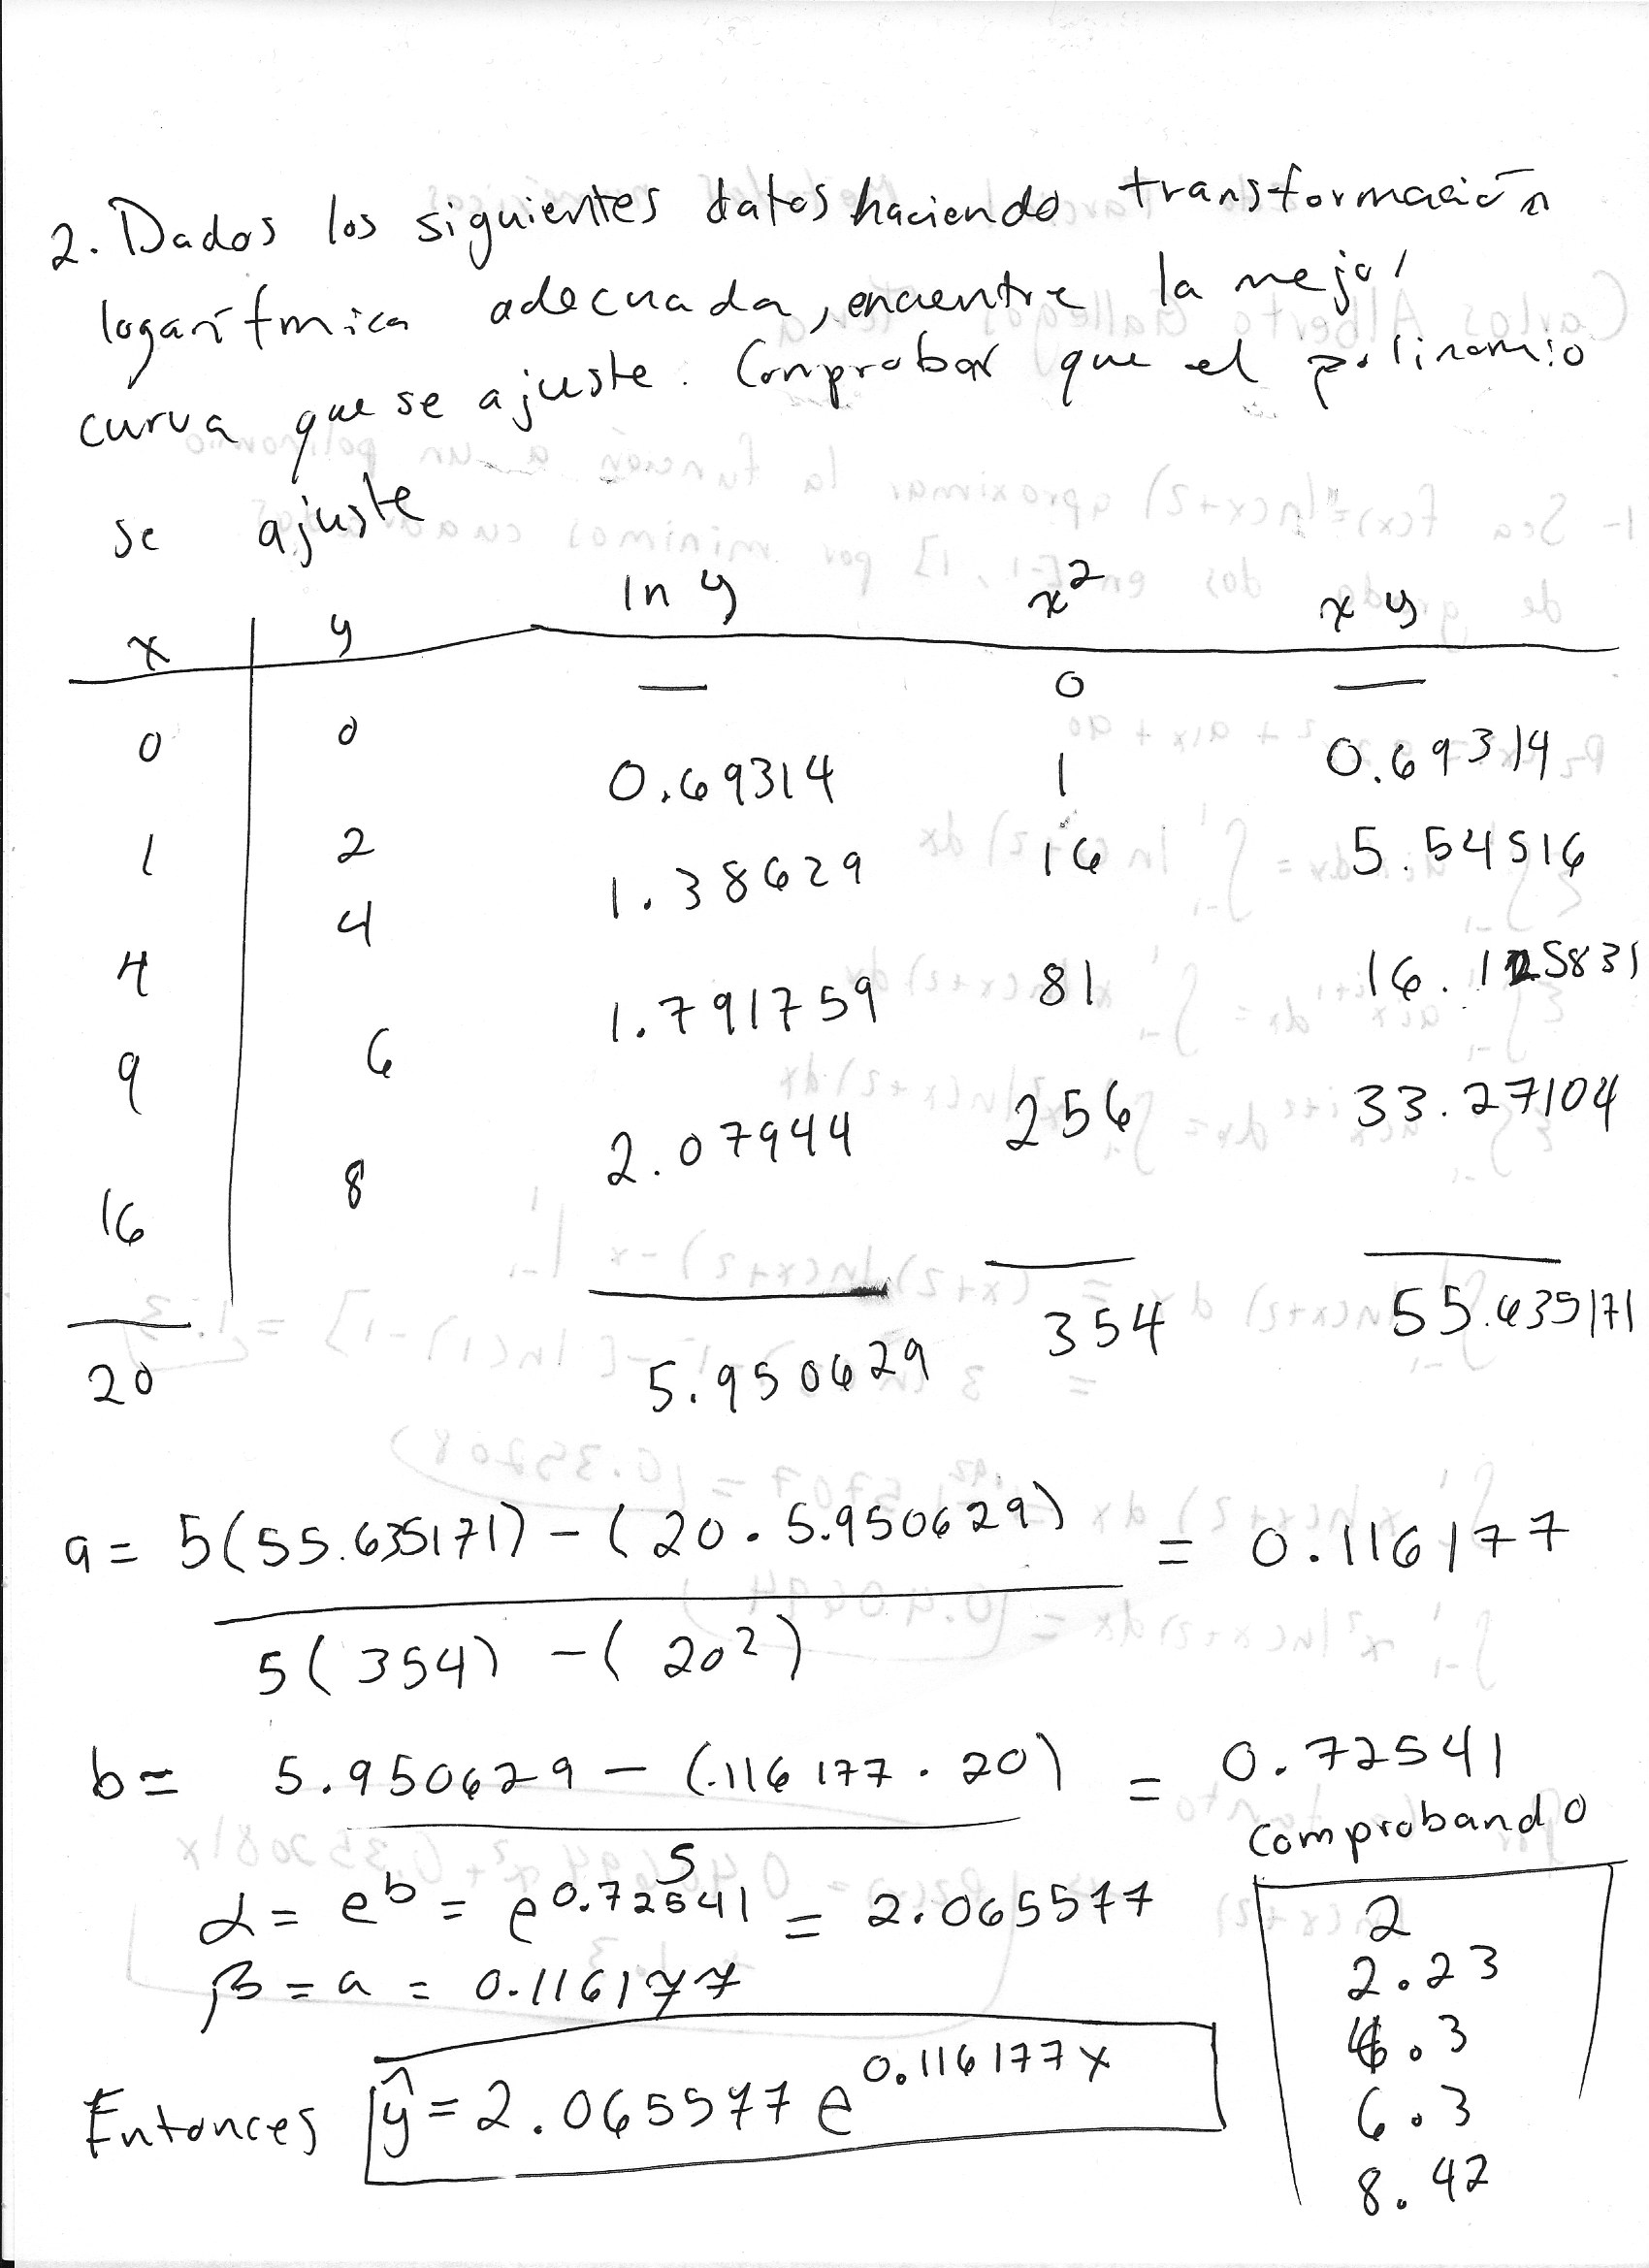 2. Dados los siguientes datos haciendo transformación
logarítmica adecuada, encuentre la mejor
curva que se ajuste. Comprobar que el polinomio
se ajuste
x y ln y x² x y
0 0 — 0 —
1 2 0.69314 1 0.69314
4 4 1.38629 16 5.54516
9 6 1.791759 81 16.125831
16 8 2.07944 256 33.27104
20 5.950629 354 55.635171
a = 5(55.635171) - (20 · 5.950629) = 0.116177
5(354) - (20²)
b = 5.950629 - (.116177 · 20) = 0.72541
5
comprobando
α = e^b = e^0.72541 = 2.065577
2
β = a = 0.116177
2.23
4.3
Entonces ŷ = 2.065577 e^0.116177x
6.3
8.42